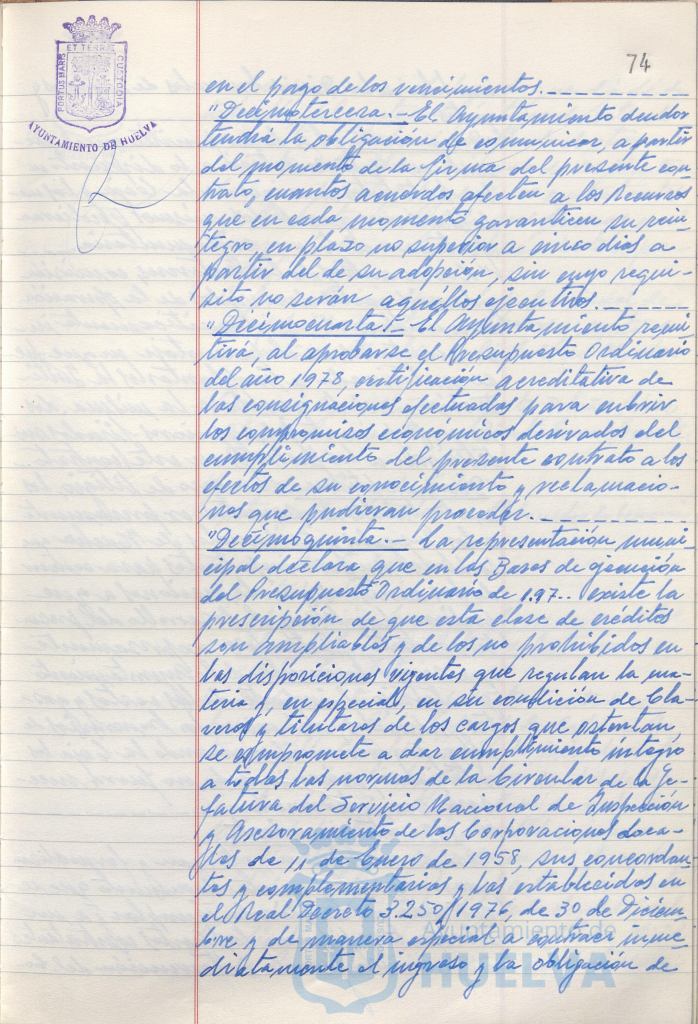 74
PORTUS MARIS ET TERRE CUSTODIA
AYUNTAMIENTO DE HUELVA
en el pago de los vencimientos.
"Decimotercera.- El Ayuntamiento deudor
tendrá la obligación de comunicar, a partir
del momento de la firma del presente con-
trato, cuantos acuerdos afecten a los Recursos
que en cada momento garanticen su rein-
tegro, en plazo no superior a cinco dias a
partir del de su adopción, sin cuyo requi-
sito no serán aquéllos ejecutivos.
"Decimocuarta.- El Ayuntamiento remi-
tirá, al aprobarse el Presupuesto Ordinario
del año 1978, certificación acreditativa de
las consignaciones efectuadas para cubrir
los compromisos económicos derivados del
cumplimiento del presente contrato a los
efectos de su conocimiento y reclamacio-
nes que pudieran proceder.
"Decimoquinta.- La representación muni-
cipal declara que en las Bases de ejecución
del Presupuesto Ordinario de 1.97.. existe la
prescripción de que esta clase de créditos
son ampliables y de los no prohibidos en
las disposiciones vigentes que regulan la ma-
teria y, en especial, en su condición de Cla-
veros y titulares de los cargos que ostentan,
se compromete a dar cumplimiento integro
a todas las normas de la Circular de la Je-
fatura del Servicio Nacional de Inspección
y Asesoramiento de las Corporaciones Loca-
les de 11 de Enero de 1958, sus concordan-
tes y complementarias y las establecidas en
el Real Decreto 3.250/1976, de 30 de Diciem-
bre y de manera especial a contraer inme-
diatamente el ingreso y la obligación de
Ayuntamiento de
HUELVA